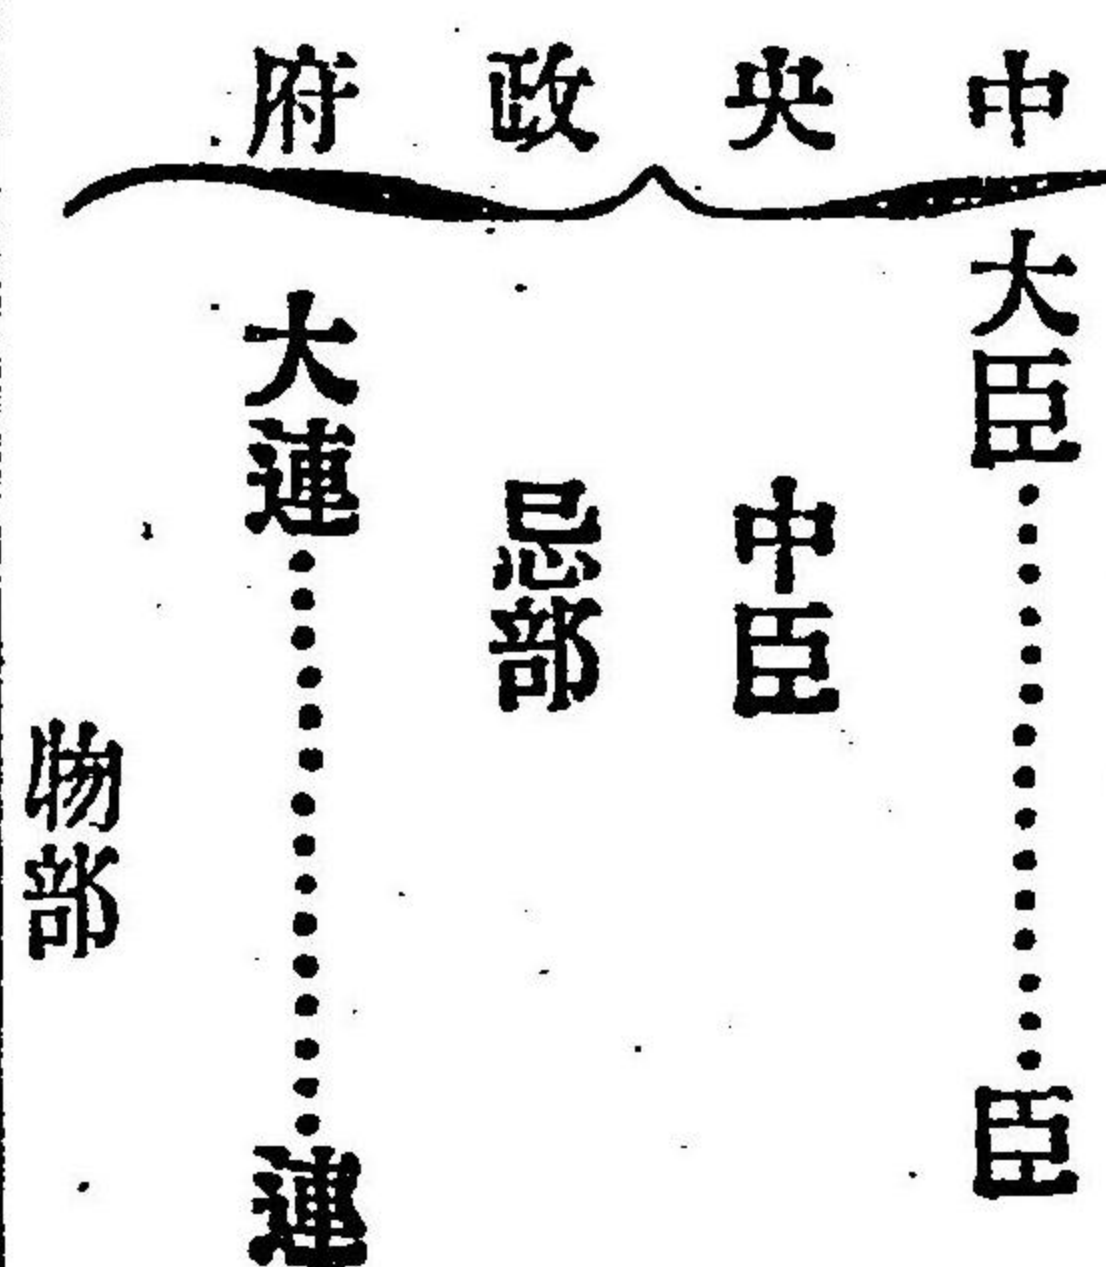 中央政府
大臣……………臣
中臣
忌部
大連……………連
物部